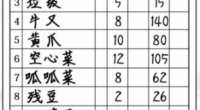 3 5 15
4 牛又 8 140
5 黄爪 10 80
6 空心菜 12 105
7 呱呱菜 8 62
8 残豆 2 26